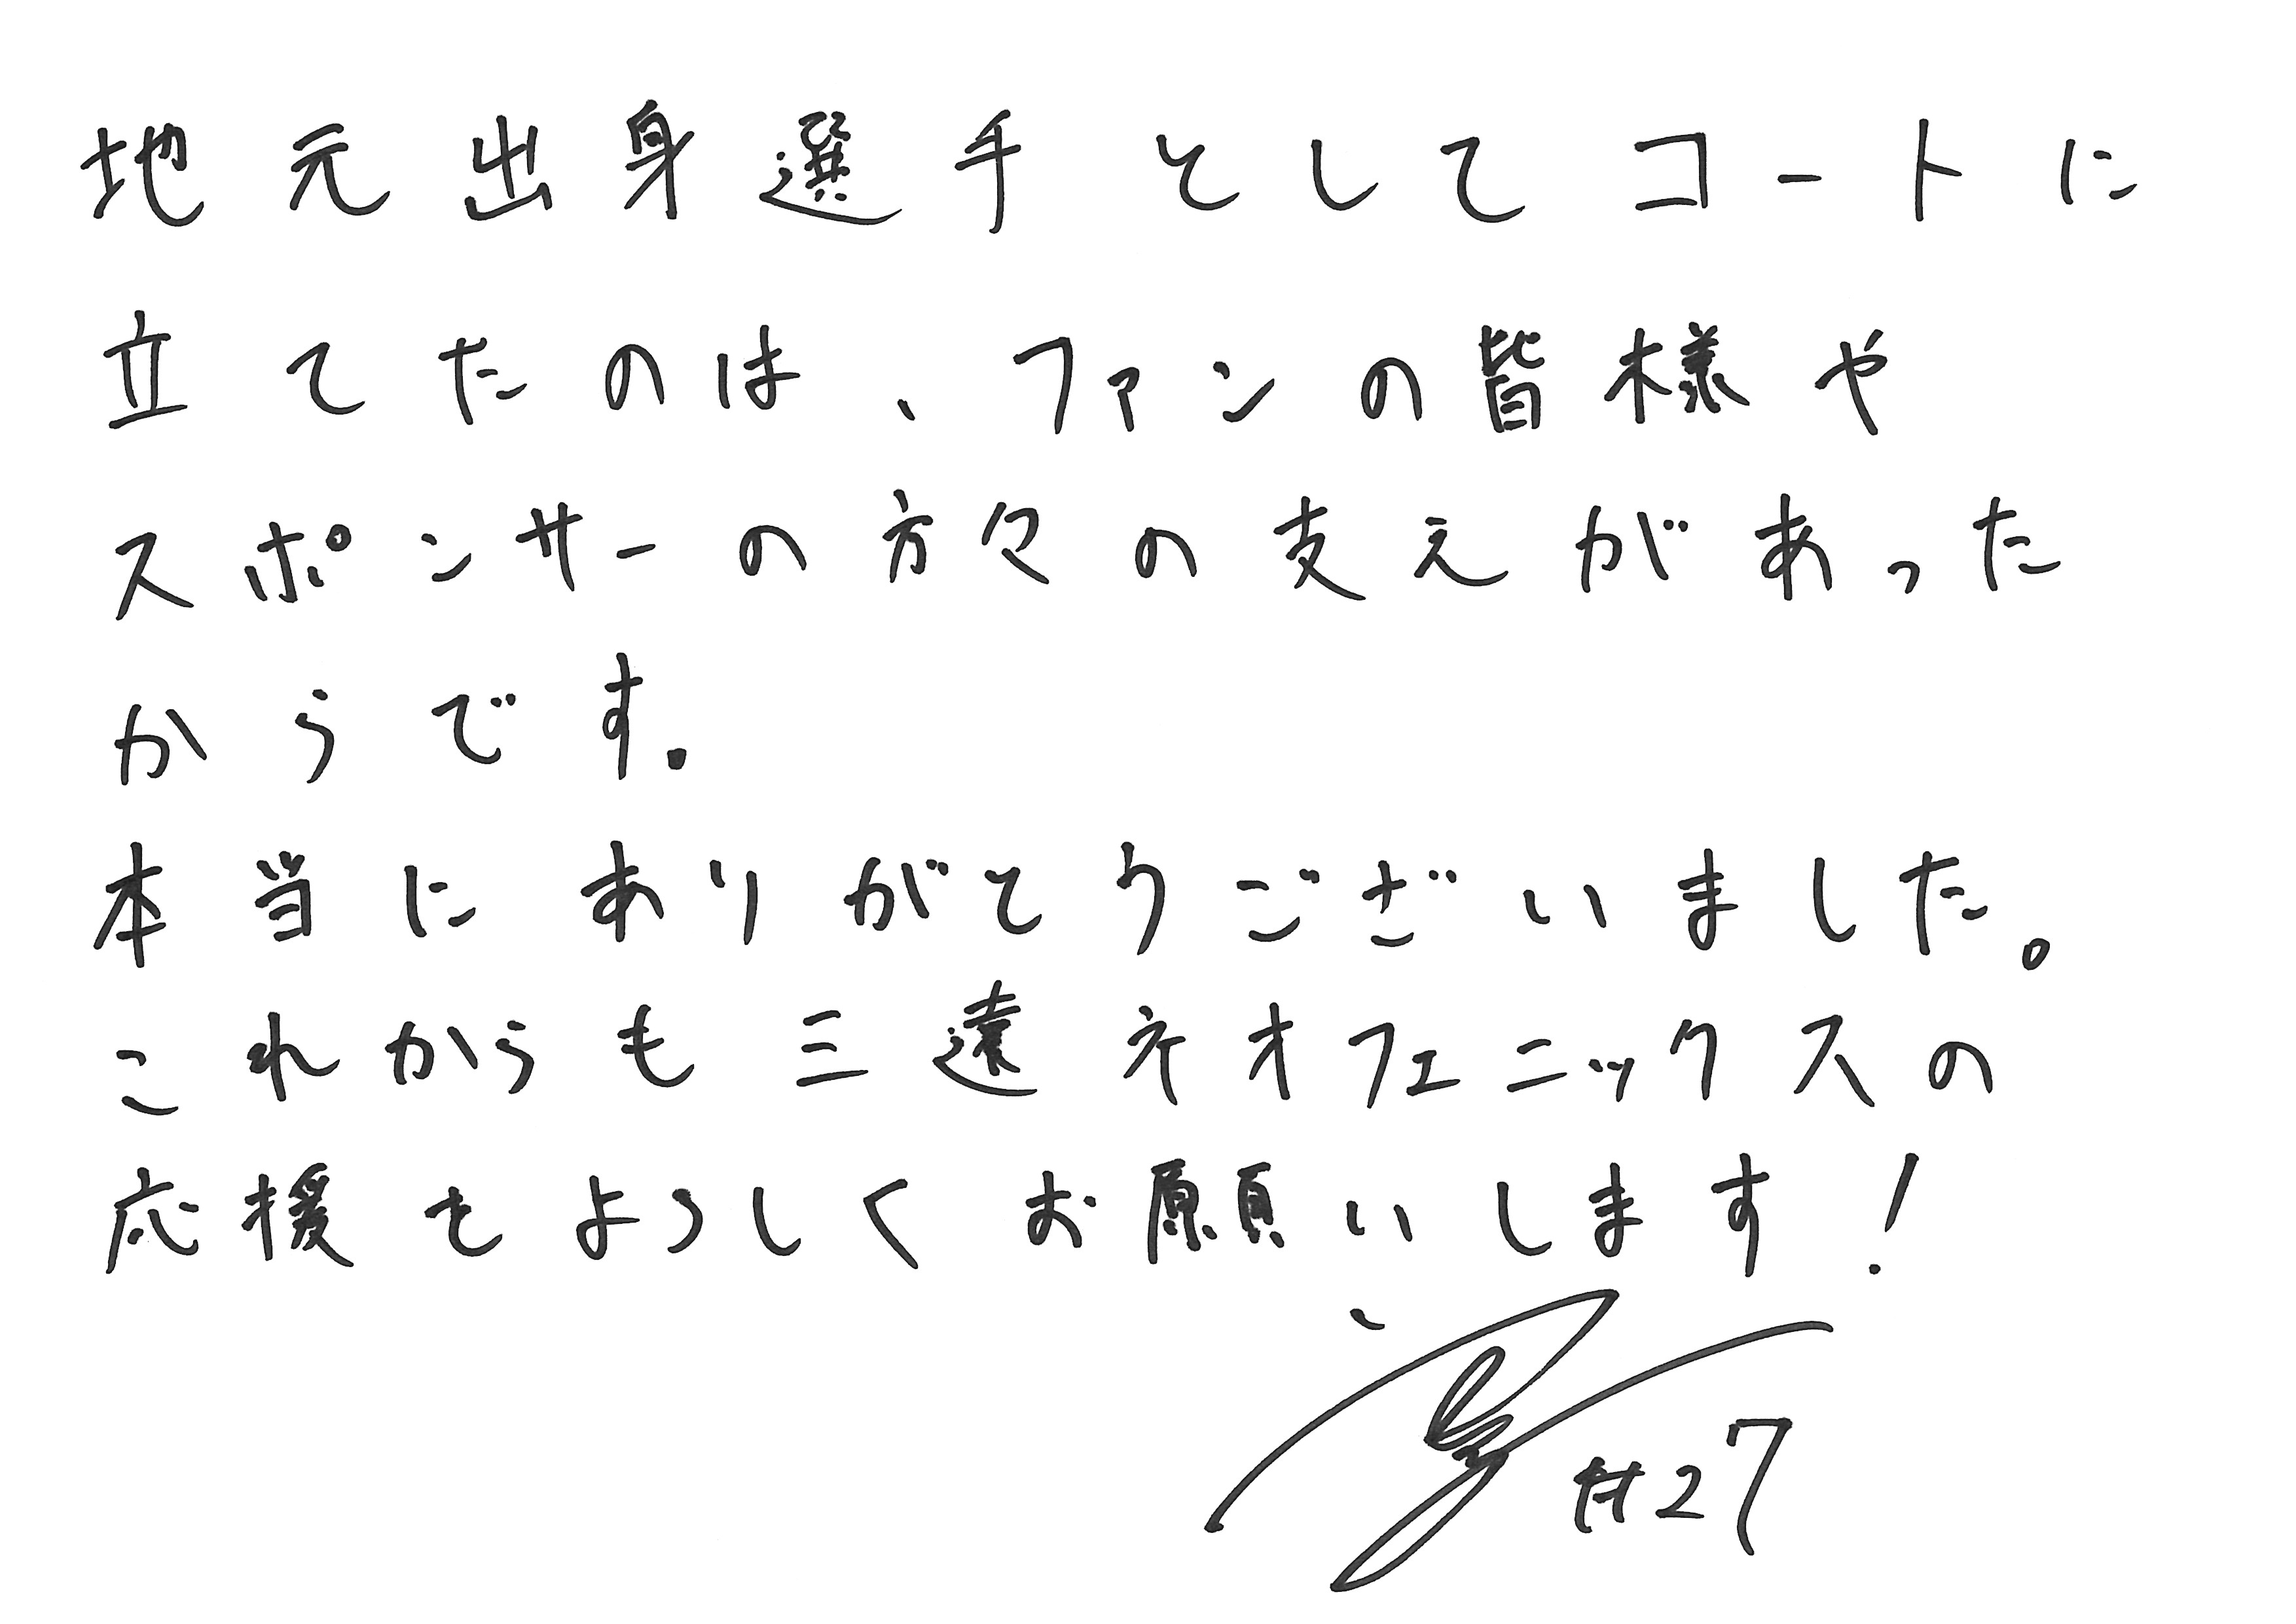 地元出身選手としてコートに
立てたのは、ファンの皆様や
スポンサーの方々の支えがあった
からです.
本当にありがとうございました。
これからも三遠ネオフェニックスの
応援もよろしくお願いします!
#27